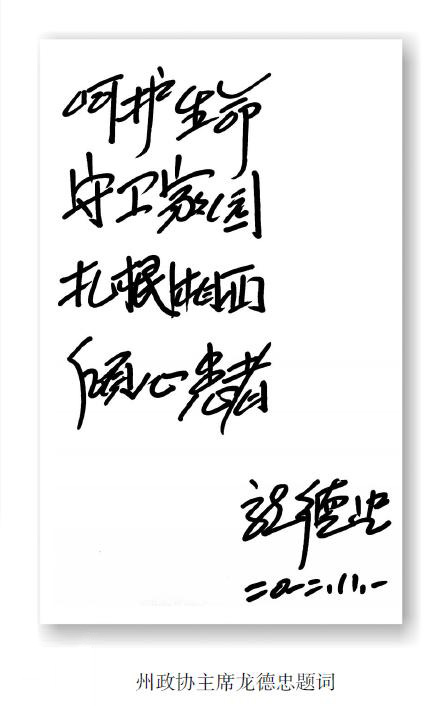 呵护生命
守卫家园
扎根湘西
倾心患者
龙德忠
二〇二二.11.一
州政协主席龙德忠题词